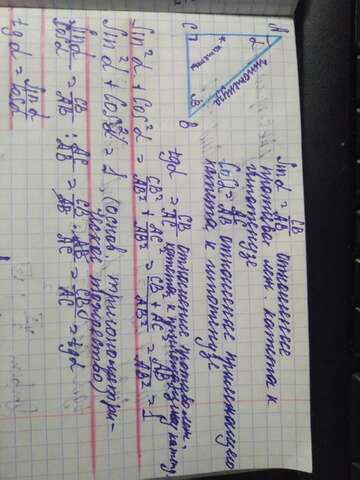 A
α
C
B
β
катет
гипотенуза
Sinα = CB/AB отношение
противолеж. катета к
гипотенузе
Cosα = AC/AB отношение прилежащего
катета к гипотенузе
tgα = CB/AC отношение противолеж.
катета к прилежащему катету.
Sin²α + Cos²α = CB²/AB² + AC²/AB² = CB² + AC²/AB² = AB²/AB² = 1
Sin²α + Cos²α = 1 (основ тригонометри-
ческое тождество)
Sinα/Cosα = CB/AB : AC/AB = CB · AB/AB · AC = BC/AC = tgα
tgα = Sinα/Cosα